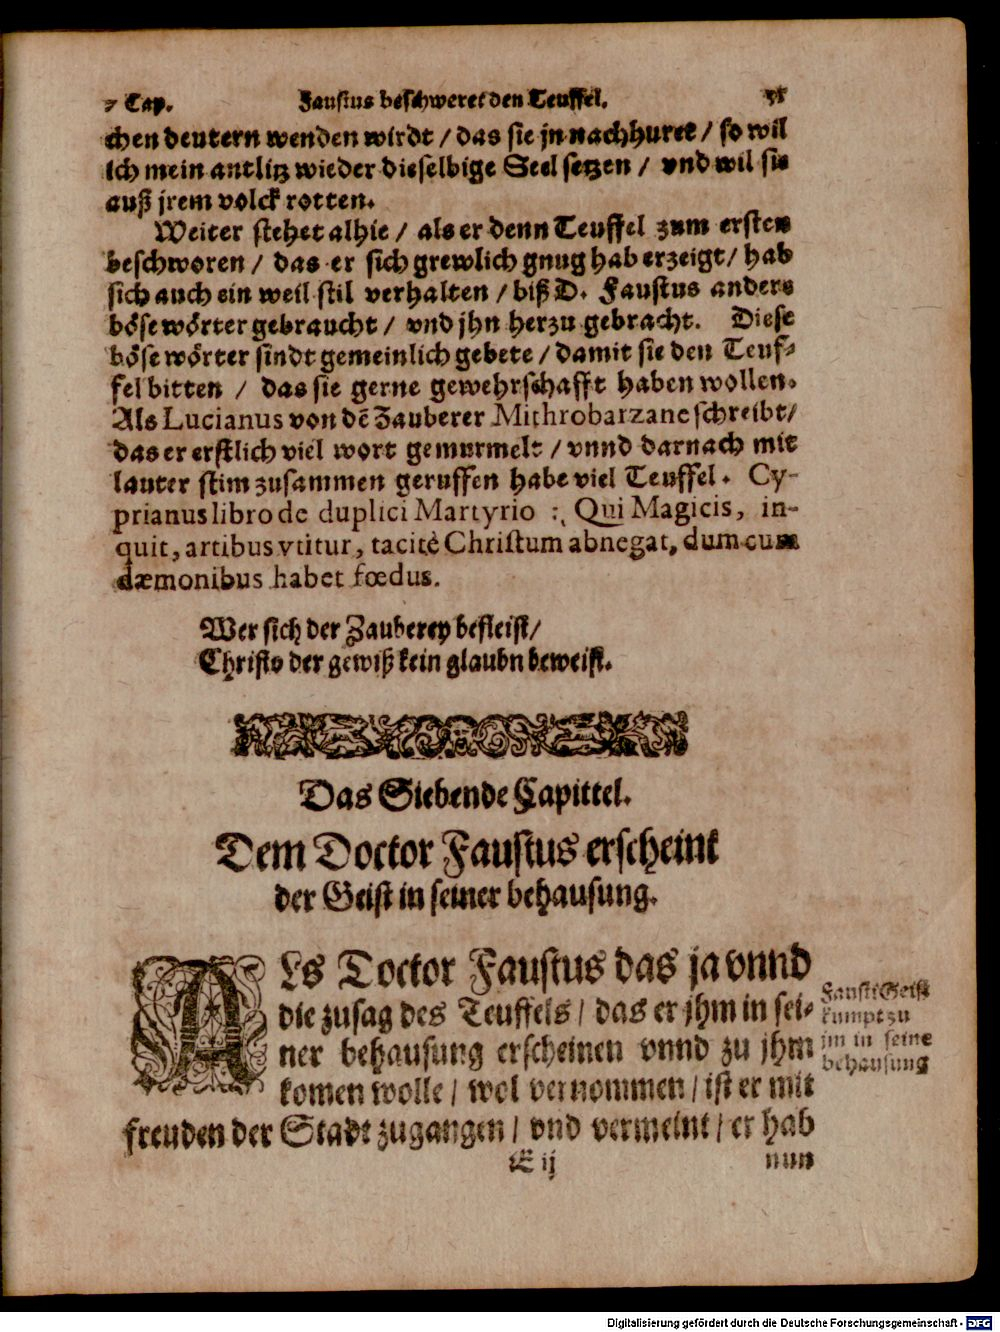 7 Cap. Faustus beschweret den Teuffel. 35
chen deutern wenden wirdt / das sie jn nachhuret / so wil
ich mein antlitz wieder dieselbige Seel setzen / vnd wil sie
auß jrem volck rotten.
Weiter stehet alhie / als er denn Teuffel zum ersten
beschworen / das er sich grewlich gnug hab erzeigt / hab
sich auch ein weil stil verhalten / biß D. Faustus anders
böse wörter gebraucht / vnd jhn herzu gebracht. Diese
böse wörter sindt gemeinlich gebete / damit sie den Teuf-
fel bitten / das sie gerne gewehrschafft haben wollen.
Als Lucianus von dē Zauberer Mithrobarzane schreibt /
das er erstlich viel wort gemurmelt / vnnd darnach mit
lauter stim zusammen geruffen habe viel Teuffel. Cy-
prianus libro de duplici Martyrio : Qui Magicis, in-
quit, artibus vtitur, tacitè Christum abnegat, dum cum
dæmonibus habet fœdus.
Wer sich der Zauberey befleist /
Christo der gewiß kein glaubn beweist.
Das Siebende Capittel.
Dem Doctor Faustus erscheint
der Geist in seiner behausung.
ALs Doctor Faustus das ja vnnd
die zusag des Teuffels / das er jhm in sei-
ner behausung erscheinen vnnd zu jhm
komen wolle / wol vernommen / ist er mit
freuden der Stadt zugangen / vnd vermeint / er hab
Fausti Geist
kumpt zu
jm in seine
behausung
E ij nun
Digitalisierung gefördert durch die Deutsche Forschungsgemeinschaft - DFG